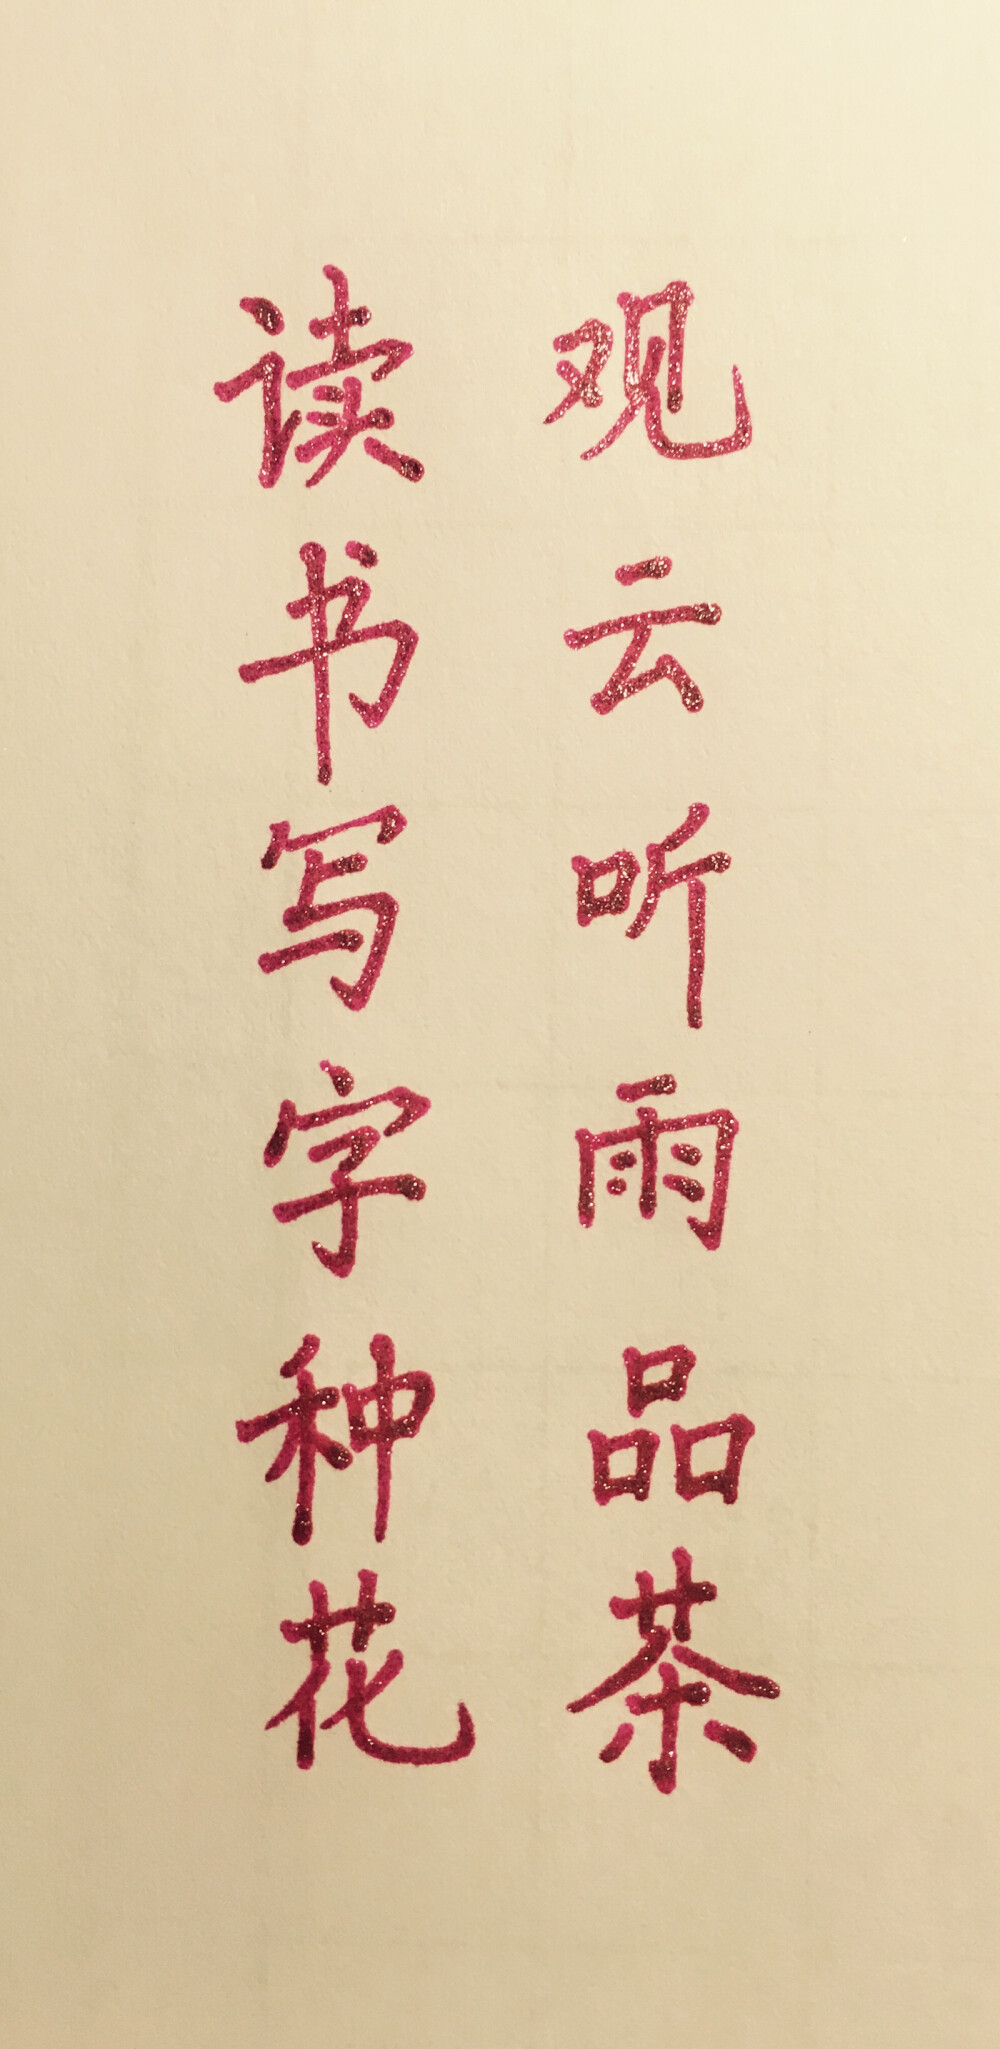 观云听雨品茶
读书写字种花